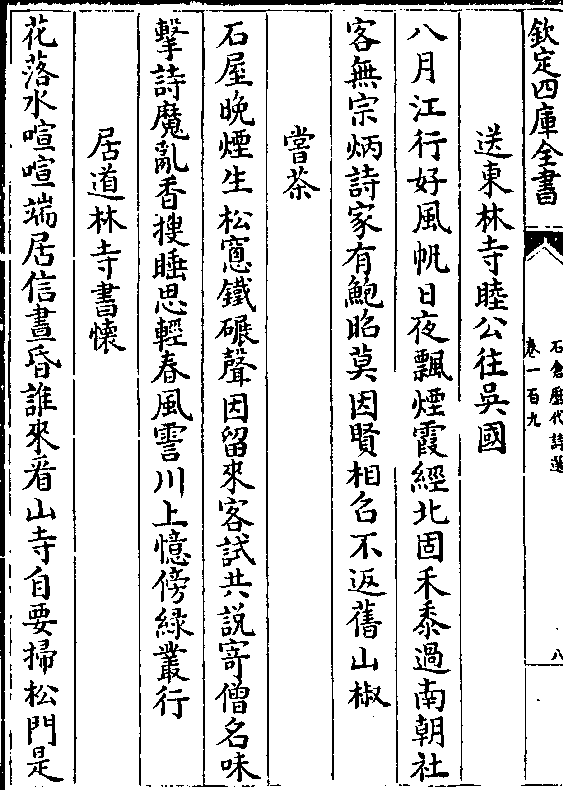 欽定四庫全書
石倉歷代詩選
卷一百九
八
送東林寺睦公往吳國
八月江行好風帆日夜飄煙霞經北固禾黍過南朝社
客無宗炳詩家有鮑昭莫因賢相召不返舊山椒
嘗茶
石屋晚煙生松窻鐵碾聲因留來客試共説寄僧名味
擊詩魔亂香搜睡思輕春風霅川上憶傍緑叢行
居道林寺書懷
花落水喧喧端居信晝昏誰來看山寺自要掃松門是